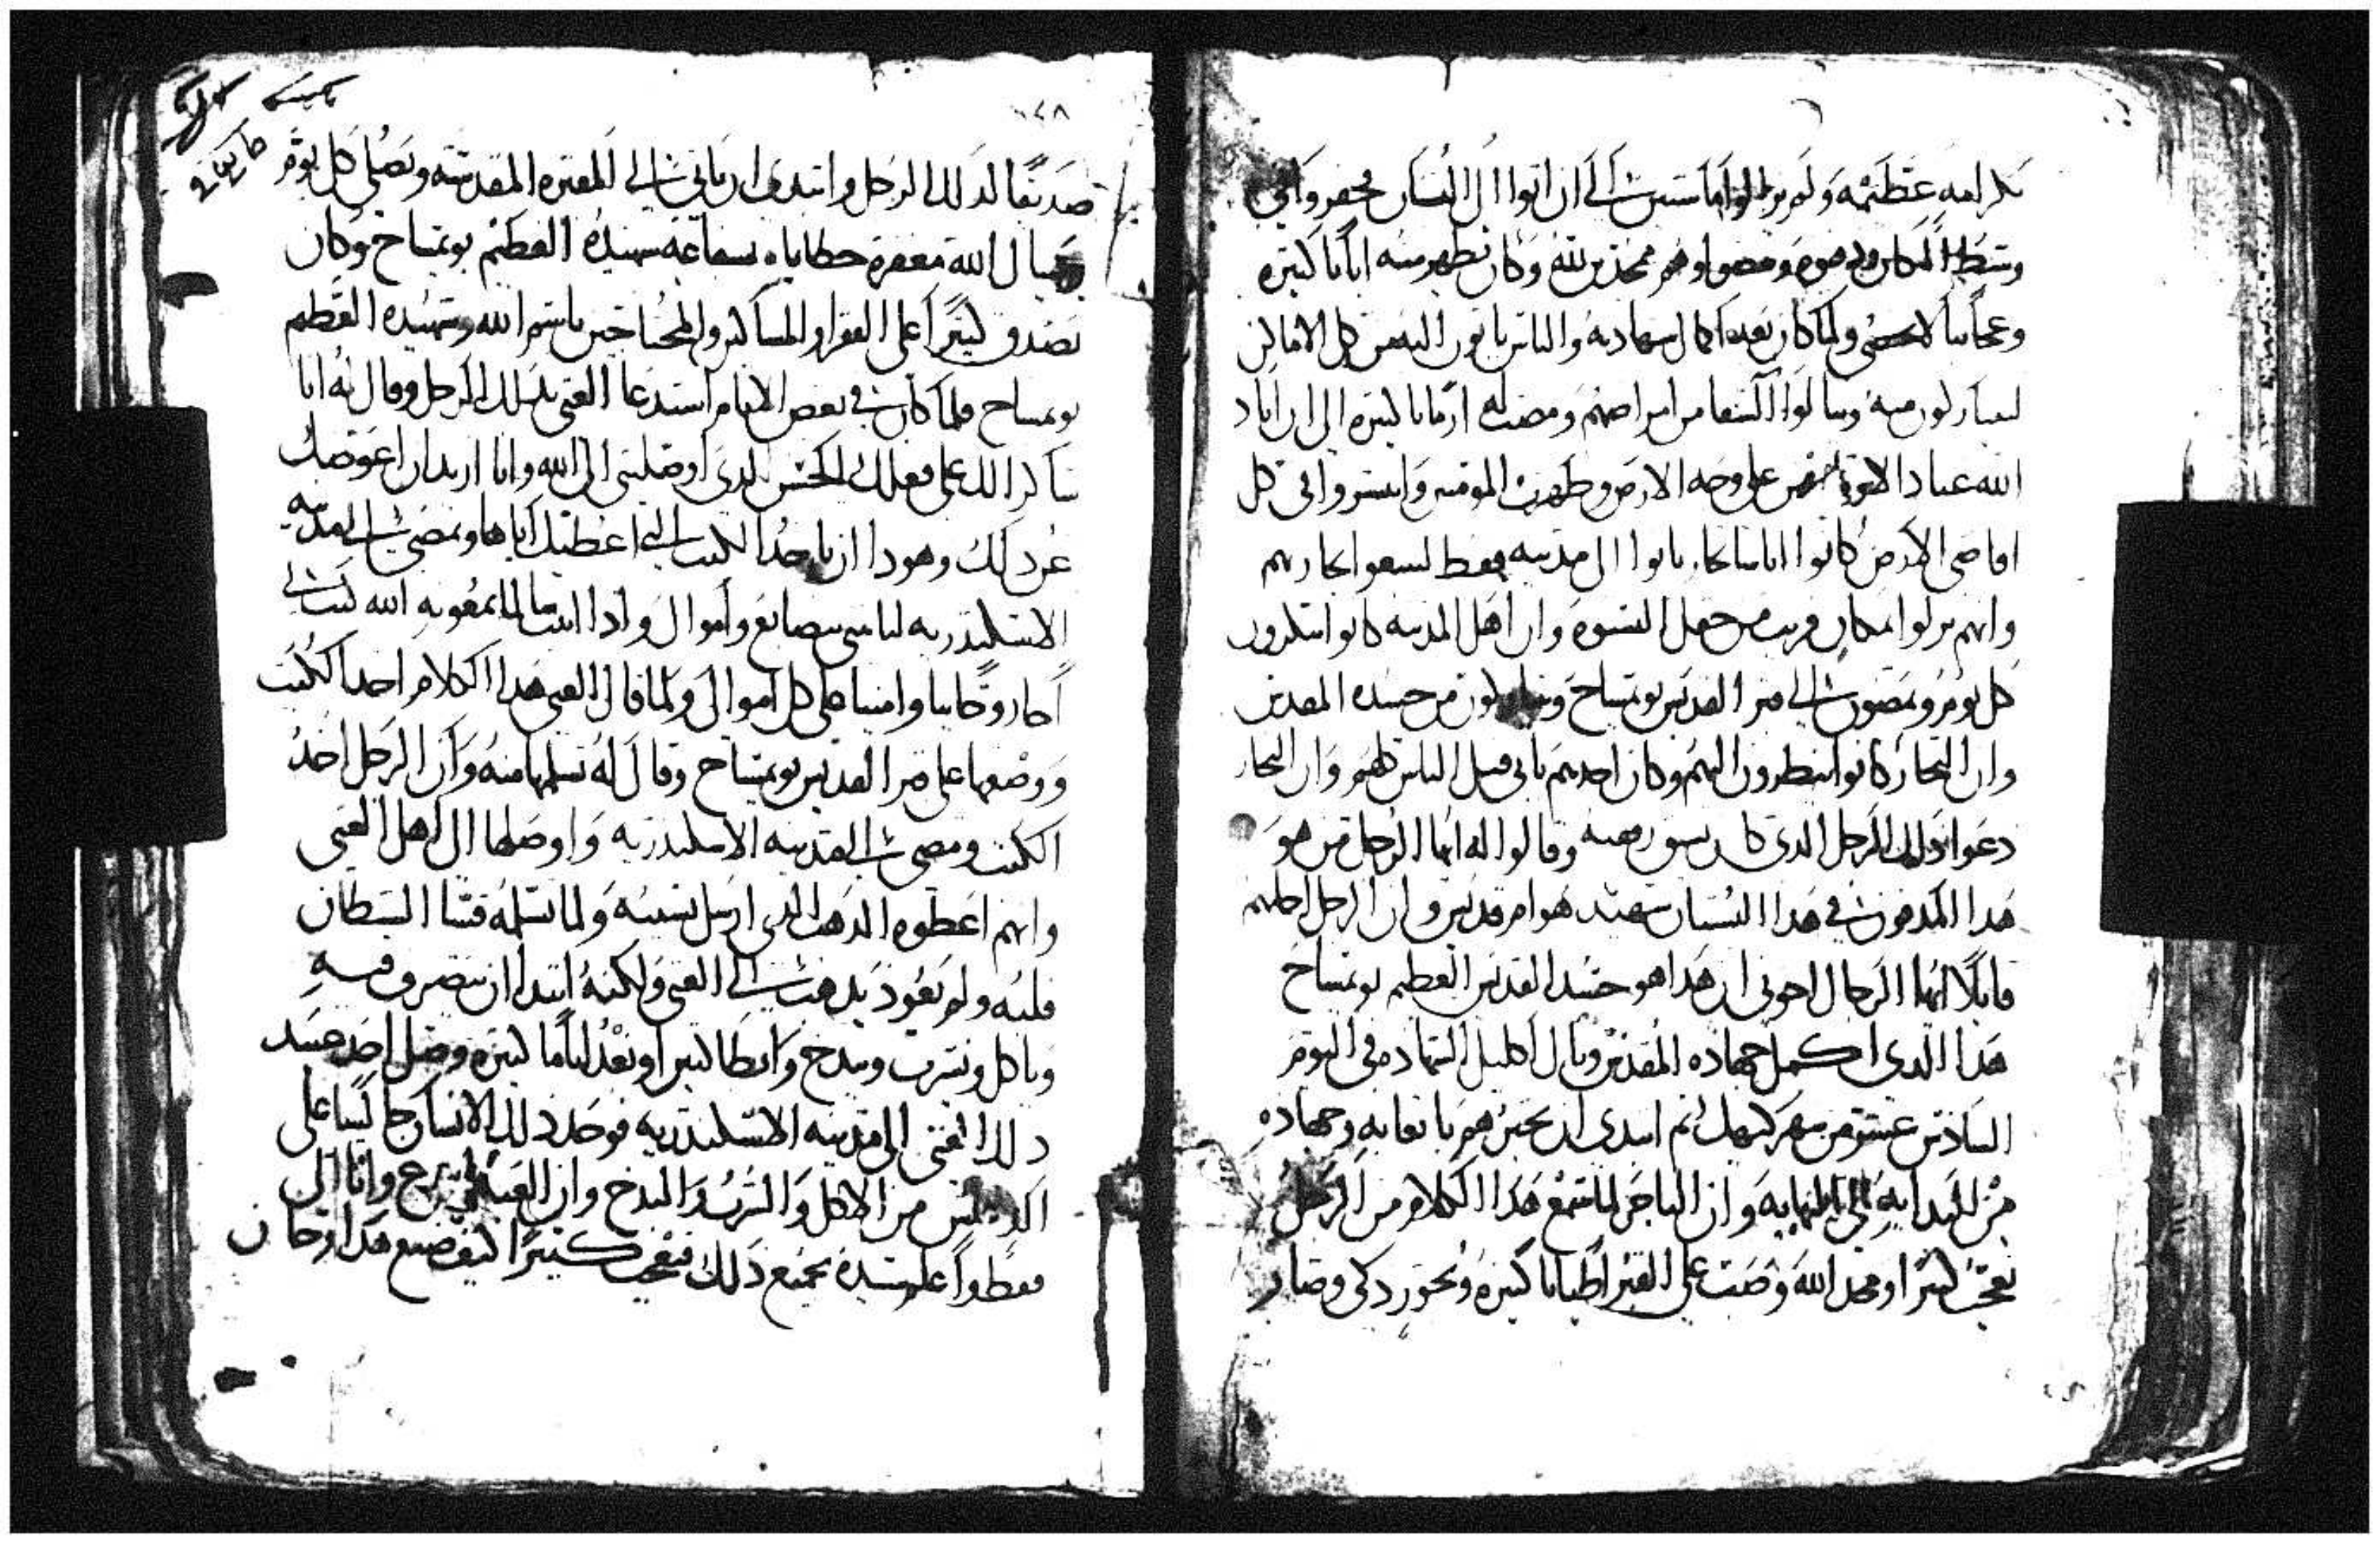 بكرامه عظيمه ولم يزالوا ماسيين الي ان اتوا الي البستان فحفروا في
وسط المكان ودفنوه ومضوا وهم ممجدين لله وكان يظهر منه اياتا كثيره
وعجايبا لا تحصي ولما كان بعد اكمال شهادته والناس ياتون اليه من كل الاماكن
ليتباركون منه وسالوا الشفا من امراضهم ومضت ازمانا كثيره الي ان اباد
الله عباد الاوثان من علي وجه الارض وظهرت المومنين وانتشروا في كل
اقاصي الارض كانوا اناسا تجار ياتوا الي مدينه قفط ليبيعوا تجارتهم
وانهم نزلوا بمكان قريب من حقل النسوه وان اهل المدينه كانوا يبكرون
كل يوم ويمضون الي قبر القديس بوتمساح ويتباركون من جسده المقدس
وان التجار كانوا ينظرون اليهم وكان احدهم ياتي قبل الناس كلهم وان التجار
دعوا ذلك الرجل الذي كان يسبق رفقته وقالوا له ايها الرجل من هو
هذا المدفون في هذا البستان شهيد هو ام قديس وان الرجل اجابهم
قايلا ايها الرجال اخوتي ان هذا هو جسد القديس العظيم بوتمساح
هذا الذي اكمل جهاده المقدس ونال اكليل الشهاده في اليوم
السادس عشر من شهر كيهك ثم ابتدي ان يخبرهم باتعابه وجهاده
من البدايه الي النهايه وان التاجر لما سمع هذا الكلام من الرجل
تعجب كثيرا ومجد الله وصب علي القبر اطيابا كثيره وبخور ذكي وصار
١٤٨
صديقا لذلك الرجل وابتدي ان ياتي الي المقبره المقدسه ويصلي كل يوم
ويسال الله مغفرة خطاياه بشفاعه شهيده العظيم بوتمساح وكان
يصدق كثيرا علي الفقرا والمساكين والمحتاجين باسم الله وشهيده العظيم
بوتمساح فلما كان في بعض الايام استدعا الغني بذلك الرجل وقال له انا
شاكرا لك علي فعلك الحسن الذي اوصلتني الي الله وانا اريد ان اعوضك
عوض ذلك وهوذا ان تاخذ الكتب التي اعطيك اياها وتمضي الي مدينه
الاسكندريه لتاتيني ببضايع واموال واذا اتيت سالما بمعونه الله كنت لي
اخا روحانيا وامينا علي كل اموالي ولما قال الغني هذا الكلام احذ الكتب
ووضعها علي قبر القديس بوتمساح وقال له تسلمها منه وان الرجل اخذ
الكتب ومضي الي مدينه الاسكندريه واوصلها الي اهل الغني
وانهم اعطوه الذهب الذي ارسل بسببه ولما تسلمه قسا الشيطان
قلبه ولم يعود يذهب الي الغني ولكنه ابتدا ان يتصرف فيه
وياكل ويشرب ويبذخ وابطا كثيرا وبعد اياما كثيره وصل احد جسد
ذلك الغني الي مدينه الاسكندريه فوجد ذلك الانسان جالسا علي
من الاكل والشرب والبذخ وان
فغطوا علي جسده بجميع ذلك فتعجب كثيرا كيف صنع هذا وخان